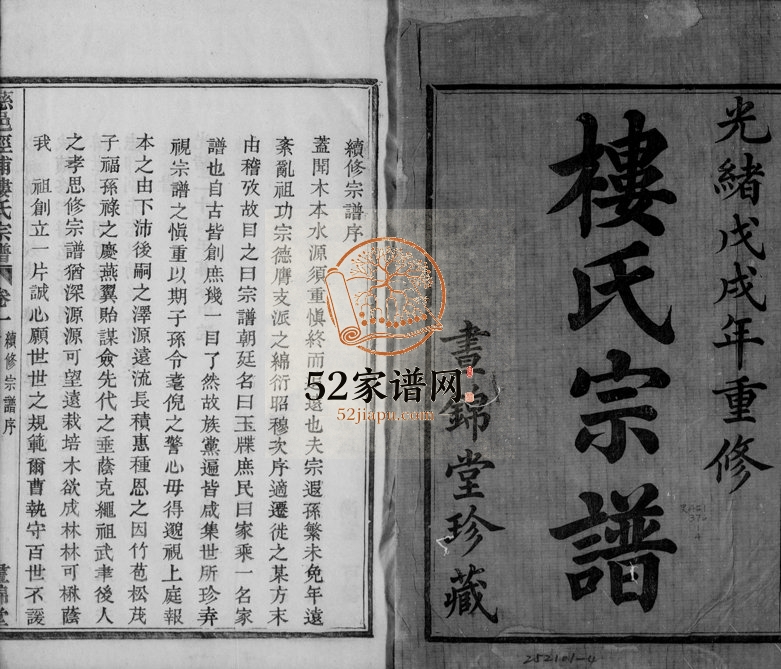 光緒戊戌年重修
樓氏宗譜
晝錦堂珍藏
續修宗譜序
蓋聞木本水源須重愼終而 遠也夫宗遐孫繁未免年遠
紊亂祖功宗德膺支派之綿衍昭穆次序適遷徙之某方末
由稽攷故目之曰宗譜朝廷名曰玉牒庶民曰家乘一名家
譜也自古皆創庶幾一目了然故族黨遍皆咸集世所珍弆
視宗譜之愼重以期子孫令耄倪之警心毋得邈視上庭報
本之由下沛後嗣之澤源遠流長積惠種恩之因竹苞松茂
子福孫祿之慶燕翼貽謀僉先代之垂蔭克繩祖武聿後人
之孝思修宗譜猶深源源可望遠栽培木欲成林林可楸蔭
我 祖創立一片誠心願世世之規範爾曹執守百世不諼
慈邑涇浦樓氏宗譜 卷一 續修宗譜序 晝錦堂
52家谱网
52jiapu.com
252101-4